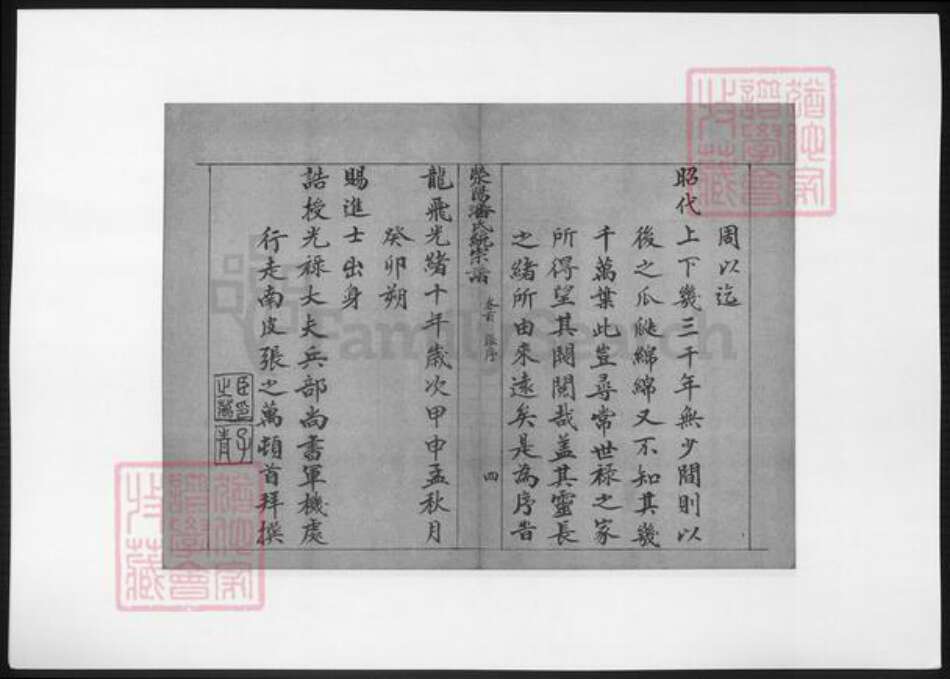 周以迄
昭代上下幾三千年無少間則以
後之瓜瓞綿綿又不知其幾
千萬葉此豈尋常世祿之家
所得望其閥閱哉蓋其靈長
之緒所由來遠矣是為序旹
滎陽潘氏統宗譜 卷首 張序 四
龍飛光緒十年歲次甲申孟秋月
癸卯朔
賜進士出身
誥授光祿大夫兵部尚書軍機處
行走南皮張之萬頓首拜撰
臣印之萬
子青
譜學會收藏
譜學會收藏
FamilySearch